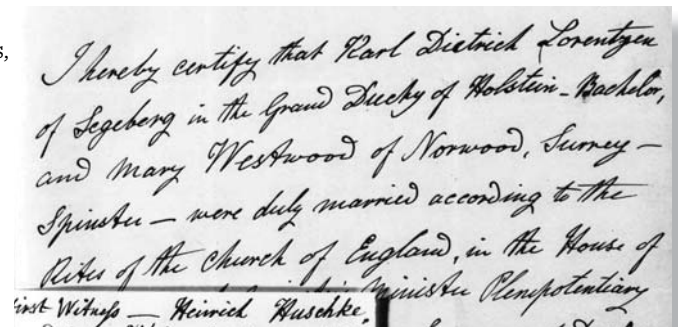 s,
I hereby certify that Karl Dietrich Lorentzen
of Segeberg in the Grand Duchy of Holstein - Bachelor,
and Mary Westwood of Norwood, Surrey -
Spinster - were duly married according to the
Rites of the Church of England, in the House of
Minister Plenipotentiary
First Witness - Heinrich Huschke,